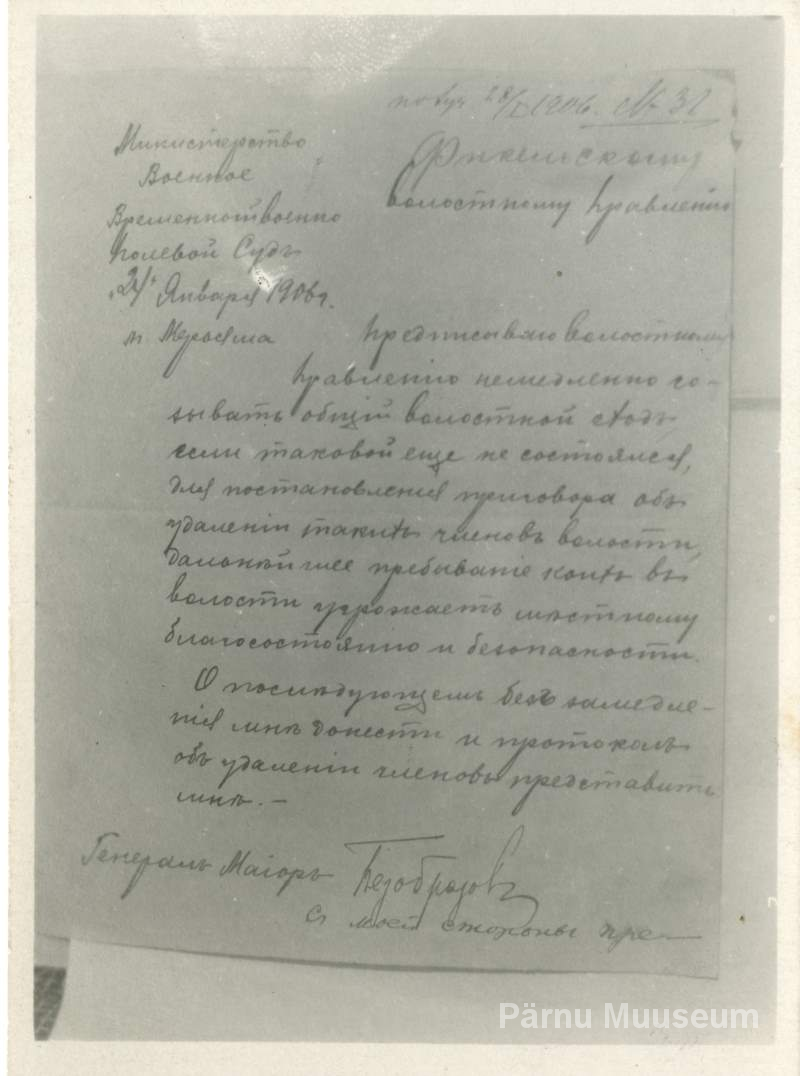 получ 28/I 1906. № 31
Фикельскому
волостному Правленію
Министерство
Военное
Временной военно
Полевой Судъ
"24" Января 1906 г.
м
Предписываю Волостному
Правленію немедленно со-
зывать общій волостной сходъ
если таковой еще не состоялся,
для постановленія приговора объ
удаленіи такихъ членовъ волости,
дальнѣйшее пребываніе коихъ въ
волости угрожаетъ мѣстному
благосостоянію и безопасности.
О послѣдующемъ безъ замедле-
нія мнѣ донести и протоколъ
объ удаленіи членовъ представить
мнѣ. —
Генералъ Маіоръ Безобразовъ
Съ моей стороны пре—
Pärnu Muuseum